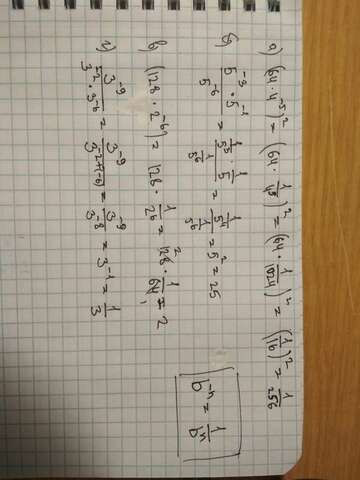 а) (64·4⁻⁵)² = (64 · 1/4⁵)² = (64 · 1/1024)² = (1/16)² = 1/256
б) (5⁻³ · 5⁻¹)/5⁻⁶ = (1/5³ · 1/5)/(1/5⁶) = (1/5⁴)/(1/5⁶) = 5² = 25
в) (128·2⁻⁶) = 128 · 1/2⁶ = 128 · 1/64 = 2
г) 3⁻⁹/(3⁻² · 3⁻⁶) = 3⁻⁹/3⁻²⁺⁽⁻⁶⁾ = 3⁻⁹/3⁻⁸ = 3⁻¹ = 1/3
b⁻ⁿ = 1/bⁿ